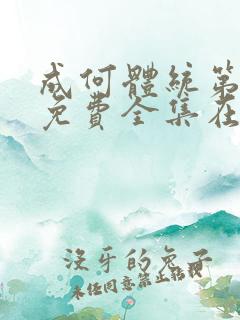 成何體統第
免費全集在
沒牙的兔子
未任同意禁止轉載